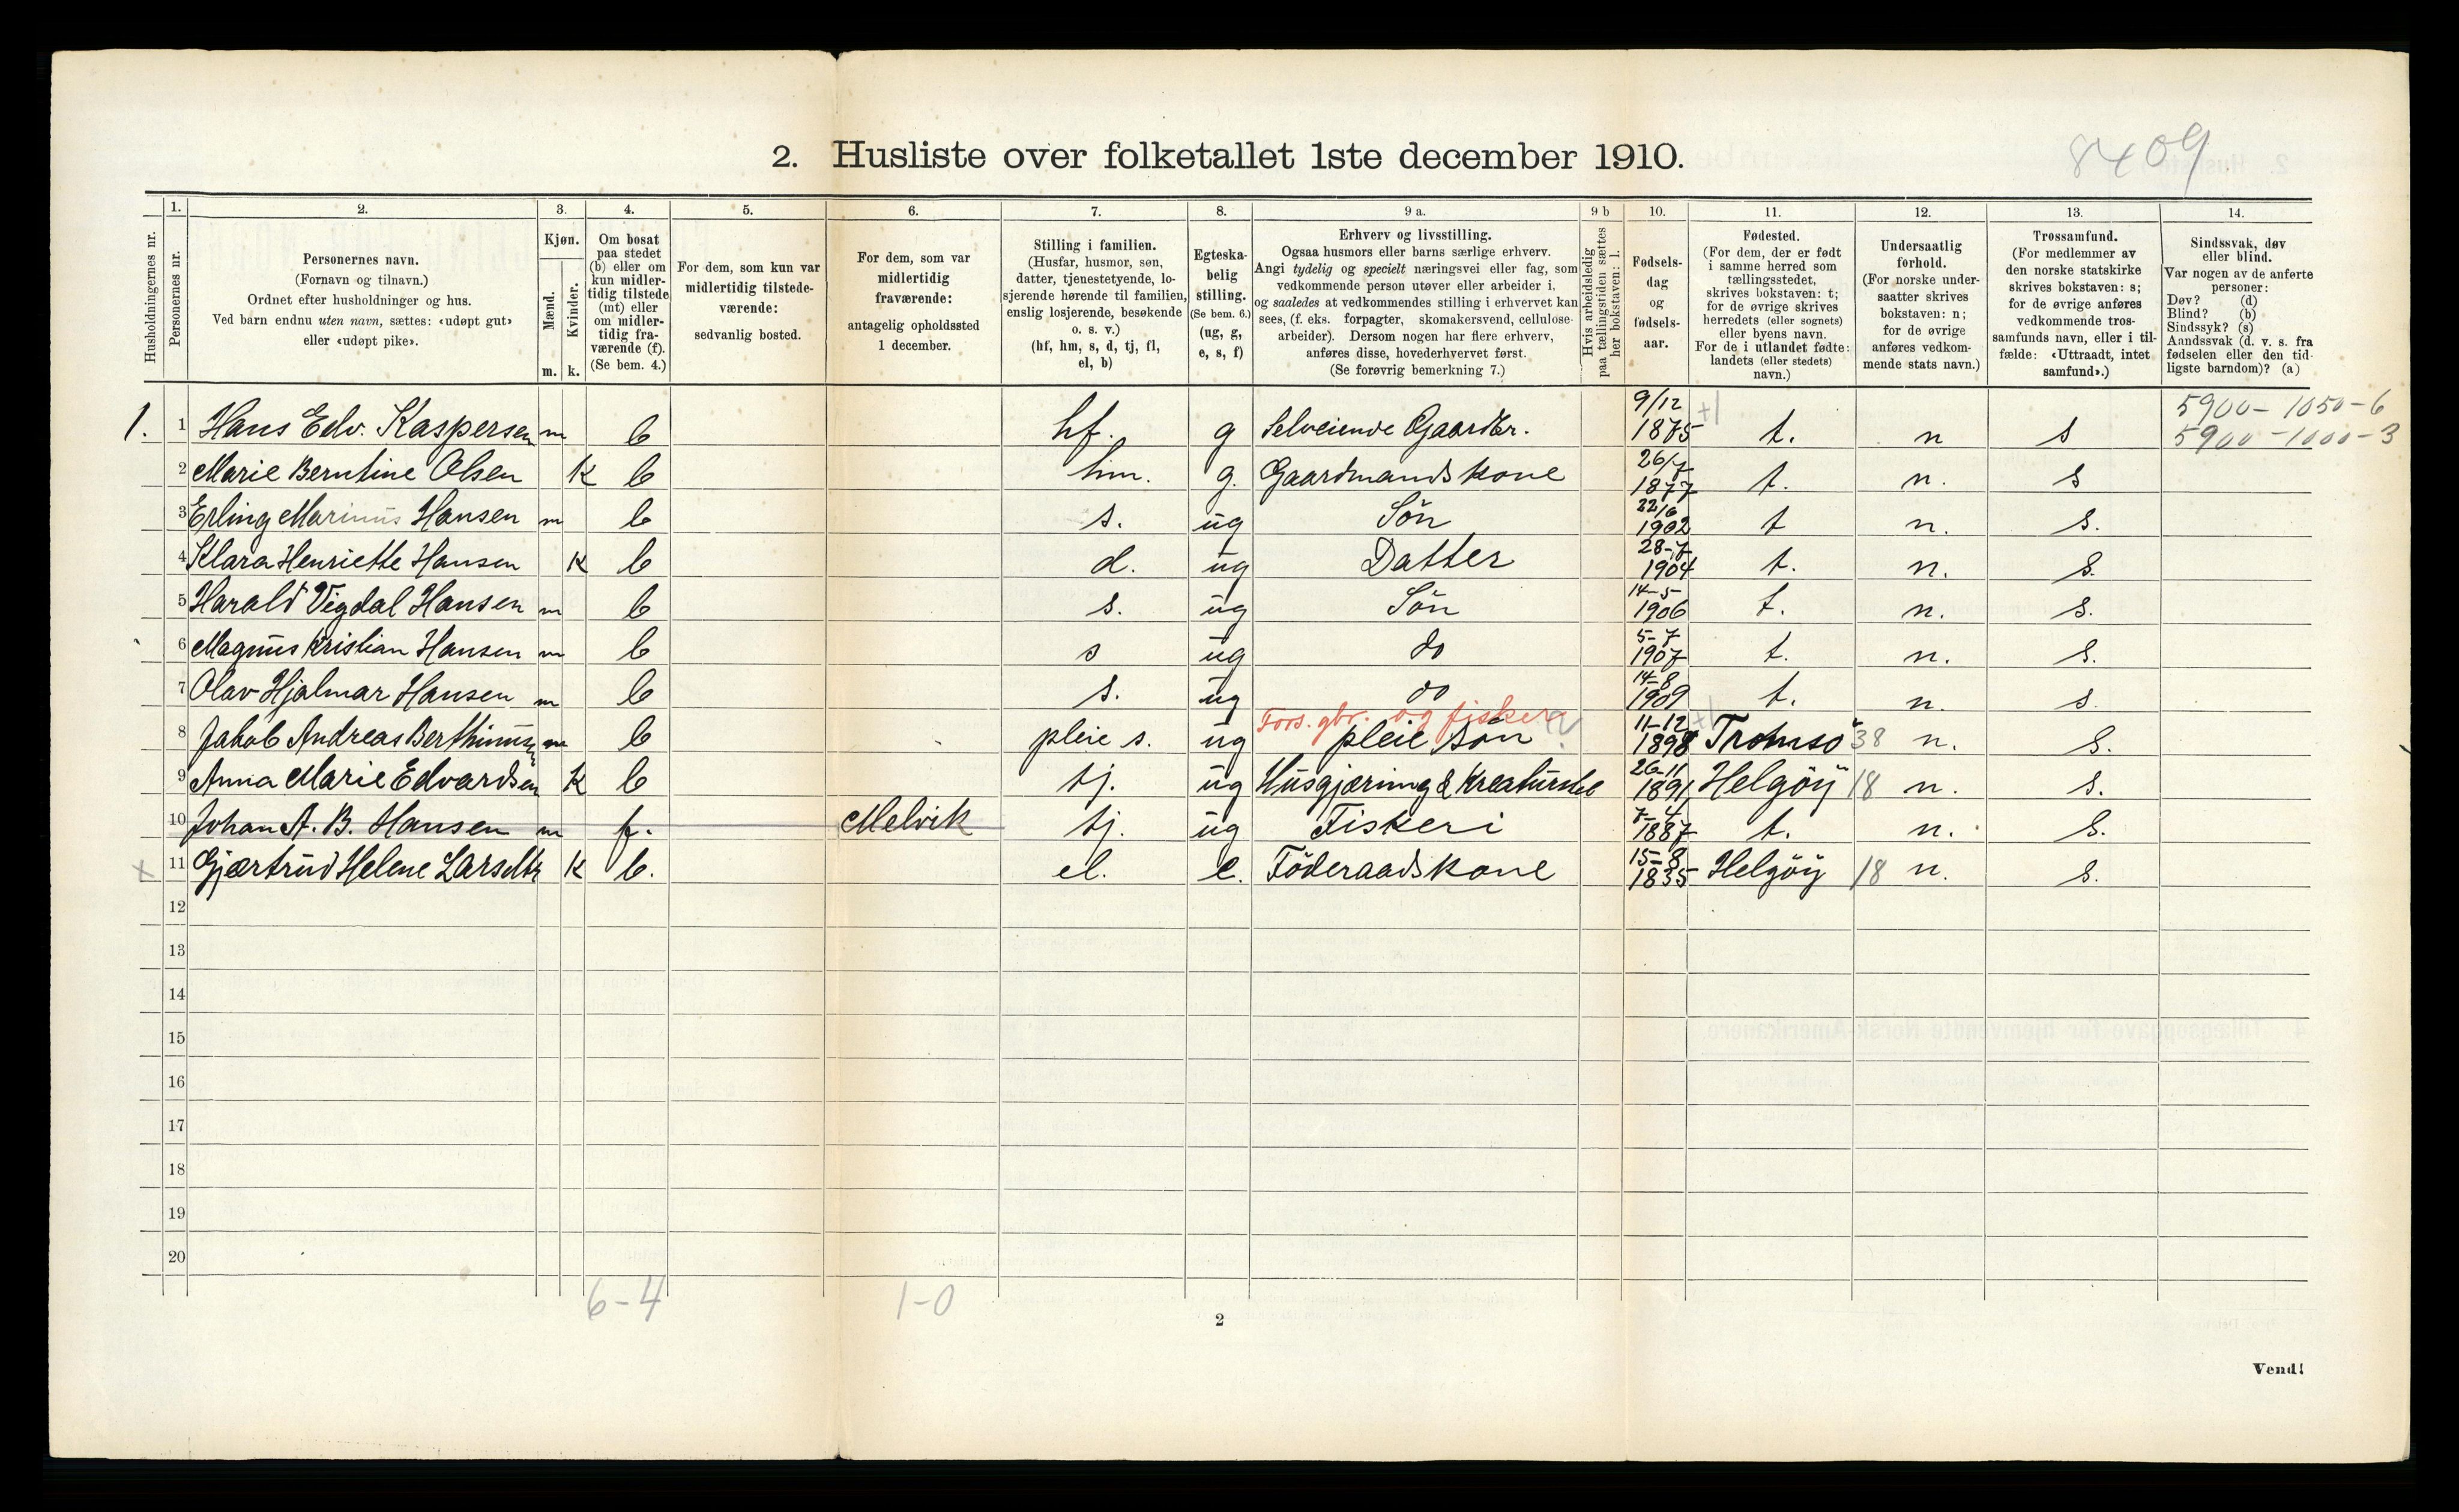 2. Husliste over folketallet 1ste december 1910.
8409
Husholdningernes nr.
1.
Personernes nr.
2.
Personernes navn.
(Fornavn og tilnavn.)
Ordnet efter husholdninger og hus.
Ved barn endnu uten navn, sættes: «udøpt gut»
eller «udøpt pike».
3.
Kjøn.
Mænd.
Kvinder.
m. k.
4.
Om bosat
paa stedet
(b) eller om
kun midler-
tidig tilstede
(mt) eller
om midler-
tidig fra-
værende (f).
(Se bem. 4.)
5.
For dem, som kun var
midlertidig tilstede-
værende:
sedvanlig bosted.
6.
For dem, som var
midlertidig
fraværende:
antagelig opholdssted
1 december.
7.
Stilling i familien.
(Husfar, husmor, søn,
datter, tjenestetyende, lo-
sjerende hørende til familien,
enslig losjerende, besøkende
o. s. v.)
(hf, hm, s, d, tj, fl,
el, b)
8.
Egteska-
belig
stilling.
(Se bem. 6.)
(ug, g,
e, s, f)
9 a.
Erhverv og livsstilling.
Ogsaa husmors eller barns særlige erhverv.
Angi tydelig og specielt næringsvei eller fag, som
vedkommende person utøver eller arbeider i,
og saaledes at vedkommendes stilling i erhvervet kan
sees, (f. eks. forpagter, skomakersvend, cellulose-
arbeider). Dersom nogen har flere erhverv,
anføres disse, hovederhvervet først.
(Se forøvrig bemerkning 7.)
9 b
Hvis arbeidsledig
paa tællingstiden sættes
her bokstaven: l.
10.
Fødsels-
dag
og
fødsels-
aar.
11.
Fødested.
(For dem, der er født
i samme herred som
tællingsstedet,
skrives bokstaven: t;
for de øvrige skrives
herredets (eller sognets)
eller byens navn.
For de i utlandet fødte:
landets (eller stedets)
navn.)
12.
Undersaatlig
forhold.
(For norske under-
saatter skrives
bokstaven: n;
for de øvrige
anføres vedkom-
mende stats navn.)
13.
Trossamfund.
(For medlemmer av
den norske statskirke
skrives bokstaven: s;
for de øvrige anføres
vedkommende tros-
samfunds navn, eller i til-
fælde: «Uttraadt, intet
samfund».)
14.
Sindssvak, døv
eller blind.
Var nogen av de anførte
personer:
Døv? (d)
Blind? (b)
Sindssyk? (s)
Aandssvak (d. v. s. fra
fødselen eller den tid-
ligste barndom)? (a)
5900-1050-6
1. 1 Hans Edv. Kaspersen m b hf. g Selveiende Gaardbr. 9/12 1875 t. n s 5900-1000-3
2 Marie Berntine Olsen k b hm. g. Gaardmandskone 26/7 1877 t. n. s
3 Erling Marinus Hansen m b s. ug Sön 22/6 1902 t n. s.
4 Klara Henriette Hansen k b d. ug Datter 28-7 1904 t. n. s.
5 Harald Vigdal Hansen m b s. ug Sön 14-5 1906 t. n. s.
6 Magnus Kristian Hansen m b s ug do 5-7 1907 t. n. s.
7 Olav Hjalmar Hansen m b s. ug do 14-8 1909 t. n. s
Fors. gbr. og fiskere
8 Jakob Andreas m b pleie s. ug pleie sön 11-12 1898 Tromsö 38 n. s.
9 Anna Marie Edvardsen k b tj. ug Husgjærning & Kreaturstel 26-11 1891 Helgöy 18 n. s.
10 Johan A. B. Hansen m f. Melvik tj. ug Fiskeri 7-4 1887 t. n. s.
x 11 Gjærtrud Helene Larsdtr k b. el. e. Föderaadskone 15-8 1835 Helgöy 18 n. s.
12
13
14
15
16
17
18
19
20
6-4 1-0
2
Vend!